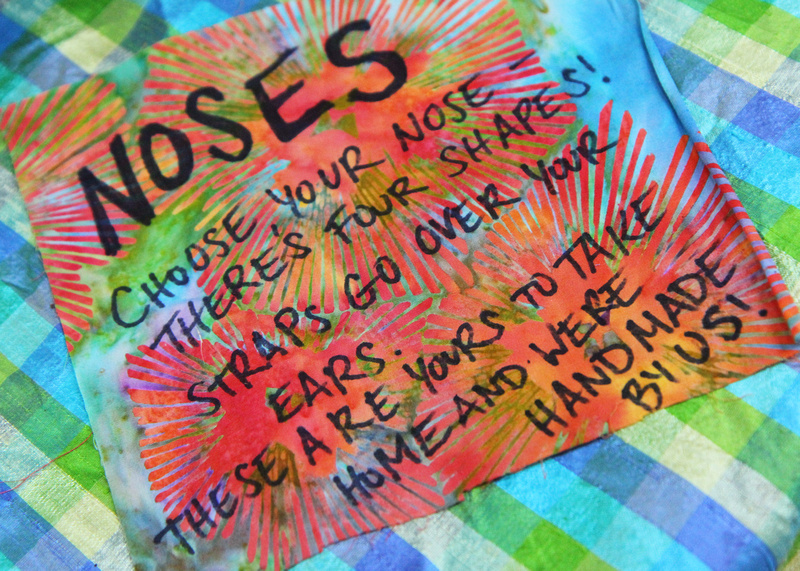 NOSES
CHOOSE YOUR NOSE -
THERE'S FOUR SHAPES!
STRAPS GO OVER YOUR
EARS.
THESE ARE YOURS TO TAKE
HOME AND WERE
HANDMADE
BY US!